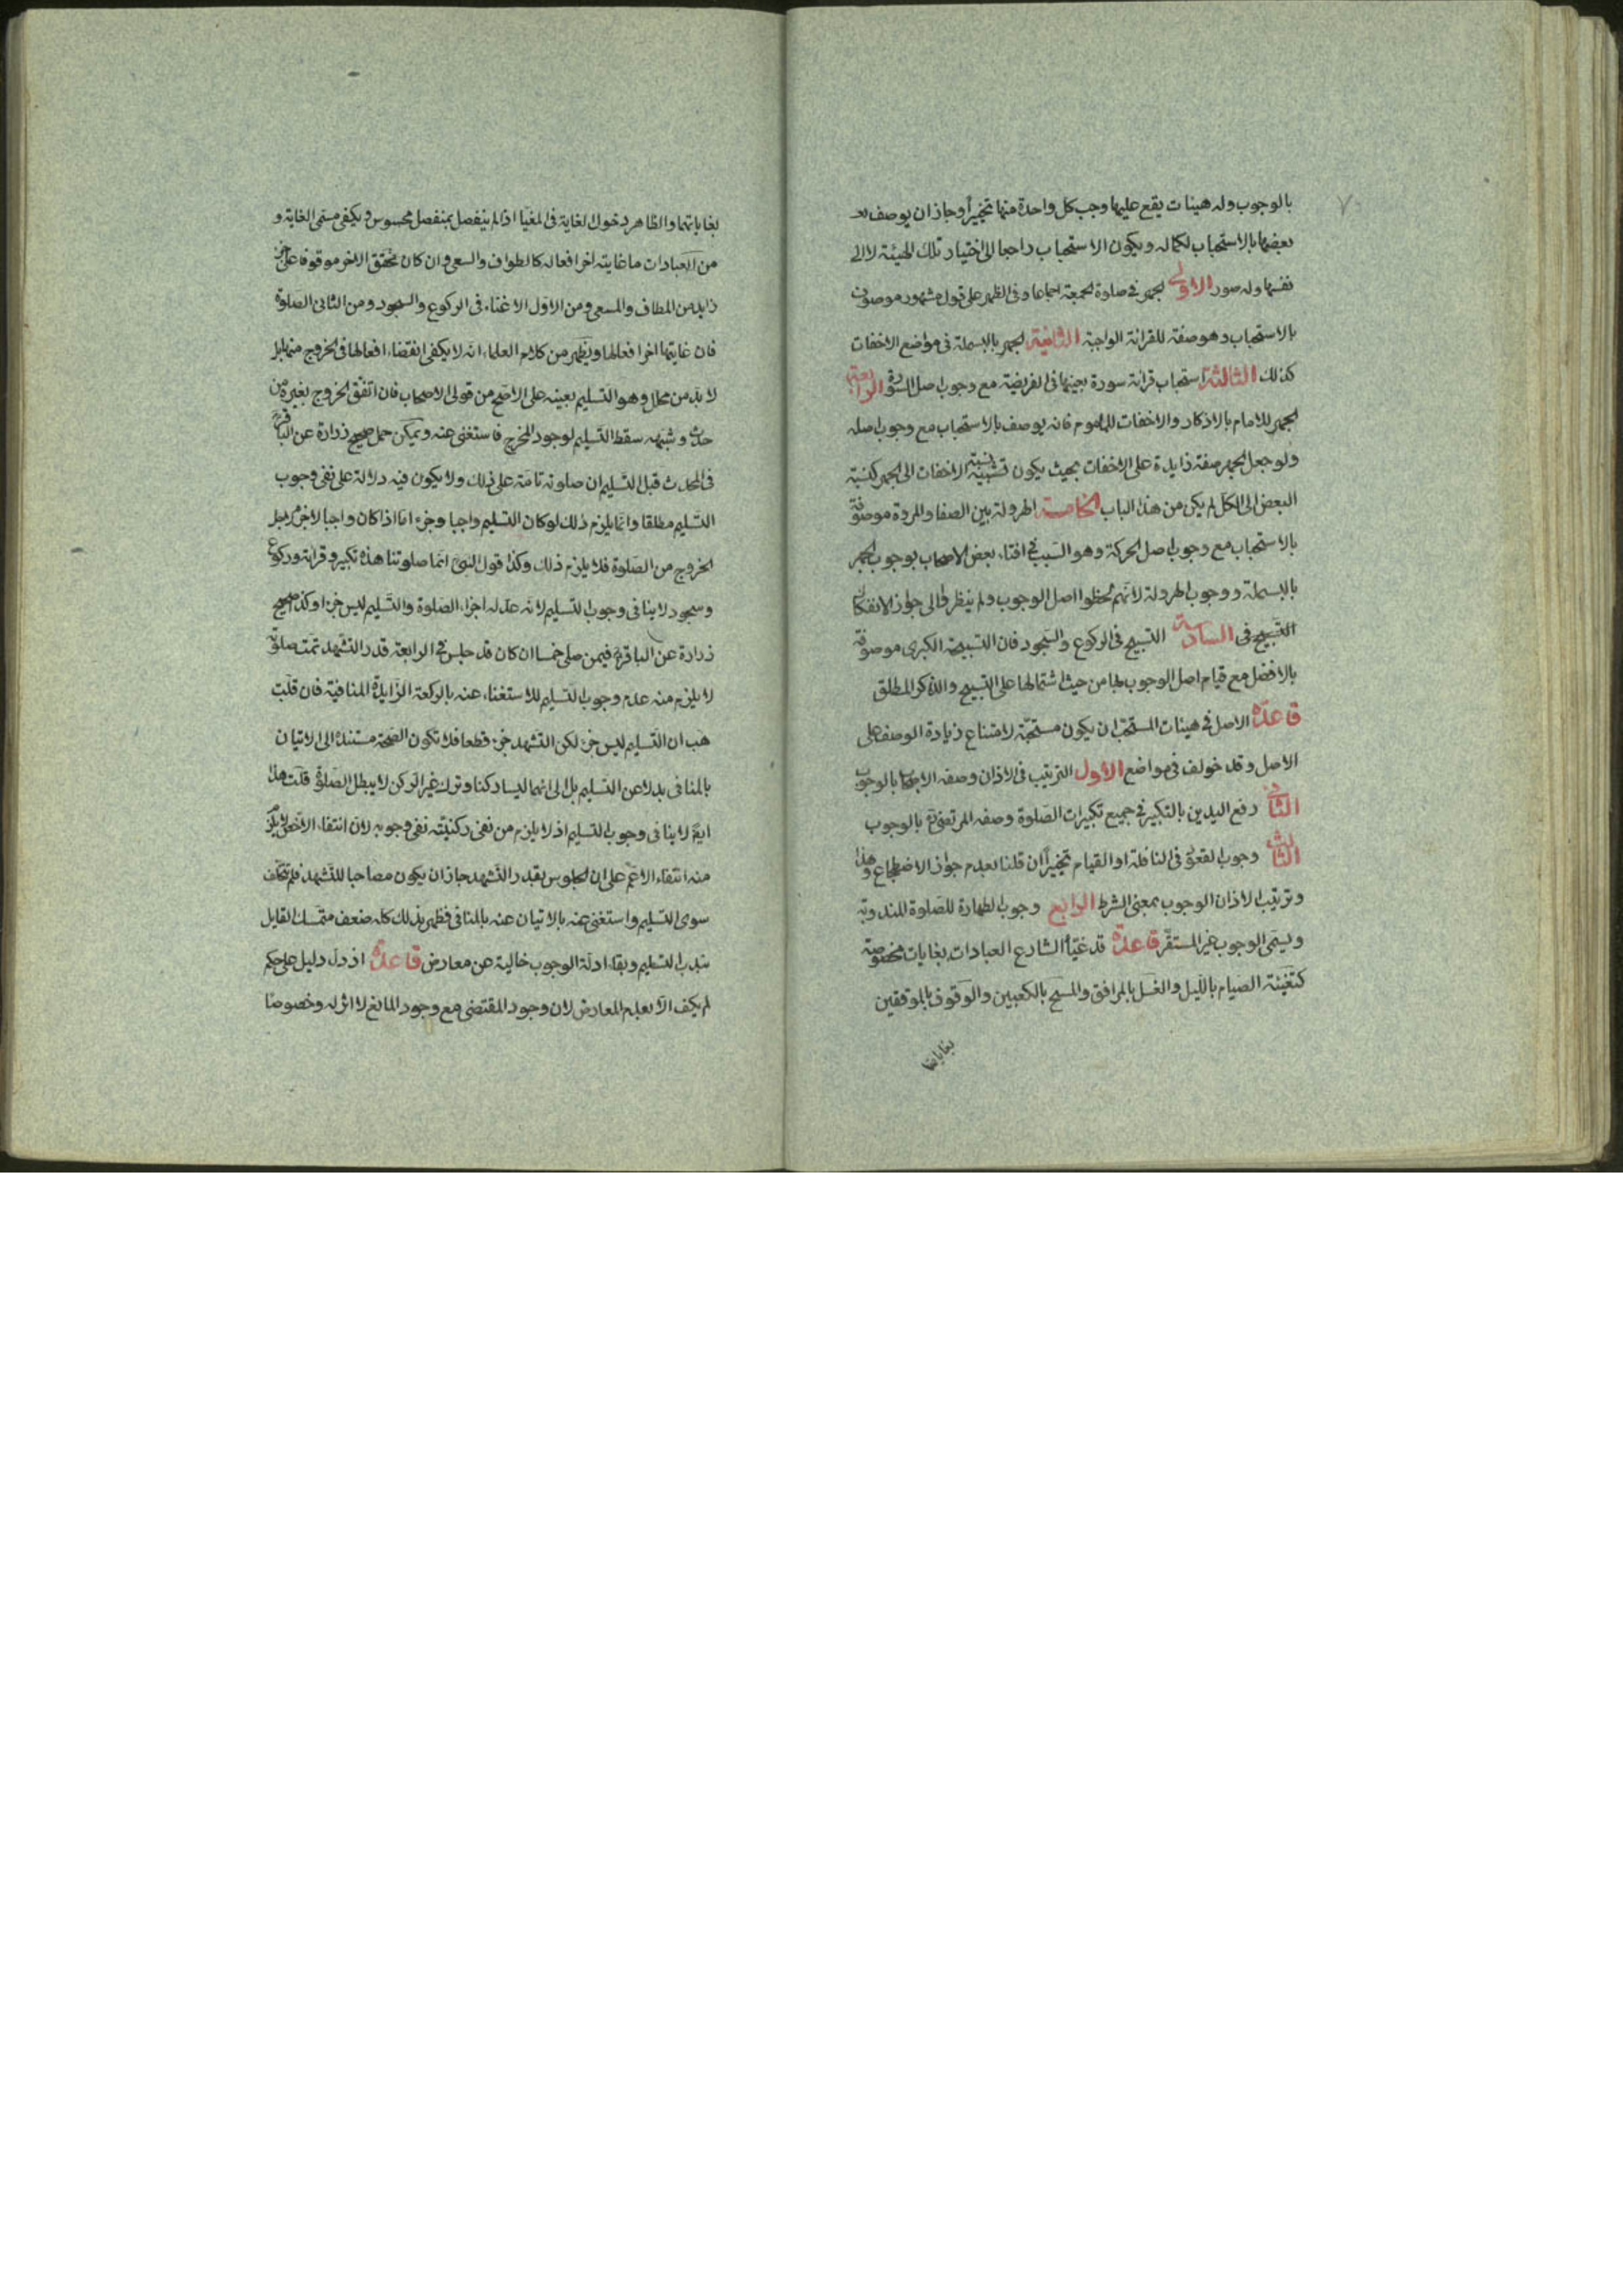 ٧٠
بالوجوب وله هيئات يقع عليها وجب كل واحدة منها تخييرا وجاز ان يوصف
بعضها بالاستحباب لكماله ويكون الاستحباب راجعا الى اختيار تلك الهيئة لا الى
نفسها وله صور الاولى الجهر في صلوة الجمعة اجماعا وفى الظهر على قول مشهور موصوف
بالاستحباب وهو صفة للقرائة الواجبة الثانية الجهر بالبسملة فى مواضع الاخفات
كذلك الثالثة استحباب قرائة سورة بعينها فى الفريضة مع وجوب اصل السورة الرابعة
الجهر للامام بالاذكار والاخفات للماموم فانه يوصف بالاستحباب مع وجوب اصله
ولو جعل الجهر صفة زايدة على الاخفات بحيث يكون نسبة الاخفات الى الجهر كنسبة
البعض الى الكل لم يكن من هذا الباب الخامسة الهرولة بين الصفا والمروة موصوفة
بالاستحباب مع وجوب اصل الحركة وهو السبب في افتاء بعض الاصحاب بوجوب الجهر
بالبسملة ووجوب الهرولة لانهم لحظوا اصل الوجوب ولم ينظروا الى جواز الانفكاك
التسبيح فى السادسة التسبيح فى الركوع والسجود فان التسبيحة الكبرى موصوفة
بالافضل مع قيام اصل الوجوب بها من حيث اشتمالها على التسبيح والذكر المطلق
قاعدة الاصل في هيئات المستحب ان يكون مستحبة لامتناع زيادة الوصف على
الاصل وقد خولف في مواضع الاول الترتيب فى الاذان وصفه الاصحاب بالوجوب
الثانى رفع اليدين بالتكبير في جميع تكبيرات الصلوة وصفه المرتضى بالوجوب
الثالث وجوب القعود فى النافلة او القيام تخييرا ان قلنا بعدم جواز الاضطجاع وهذا
وترتيب الاذان الوجوب بمعنى الشرط الرابع وجوب الطهارة للصلوة المندوبة
ويسمى الوجوب غير المستقر قاعدة قد غيا الشارع العبادات بغايات مخصوصة
كتغيئة الصيام بالليل والغسل بالمرافق والمسح بالكعبين والوقوف بالموقفين
بغاياتها
بغاياتهما والظاهر دخول الغاية فى المغيا اذا لم ينفصل بمنفصل محسوس ويكفى مسمى الغاية و
من العبادات ما غايته اخر افعاله كالطواف والسعى وان كان تحقق الاخر موقوفا على جزء
زايد من المطاف والمسعى ومن الاول الانحناء فى الركوع والسجود ومن الثانى الصلوة
فان غايتها اخر افعالها ويظهر من كلام العلماء انه لا يكفى انقضاء افعالها فى الخروج منها بل
لا بد من محلل وهو التسليم بعينه على الاصح من قولى الاصحاب فان اتفق الخروج بغيره من
حدث وشبهه سقط التسليم لوجود المخرج فاستغنى عنه ويمكن حمل صحيح زرارة عن الباقر
فى المحدث قبل التسليم ان صلوته تامة على ذلك ولا يكون فيه دلالة على نفى وجوب
التسليم مطلقا وانما يلزم ذلك لو كان التسليم واجبا وجزء اما اذا كان واجبا لا جزء بل
الخروج من الصلوة فلا يلزم ذلك وكذا قول النبى انما صلوتنا هذه تكبير وقرائة وركوع
وسجود لا ينافى وجوب التسليم لانه عد له اجزاء الصلوة والتسليم ليس جزءا وكذا صحيح
زرارة عن الباقر فيمن صلى خمسا ان كان قد جلس في الرابعة قدر التشهد تمت صلوته
لا يلزم منه عدم وجوب التسليم للاستغناء عنه بالركعة الزايدة المنافية فان قلت
هب ان التسليم ليس جزء لكن التشهد جزء قطعا فلا تكون الصحة مستندة الى الاتيان
بالمنافى بدلا عن التسليم بل الى انهما ليسا ركنا وترك غير الركن لا يبطل الصلوة قلت هذا
ايضا لا ينافى وجوب التسليم اذ لا يلزم من نفى ركنيته نفى وجوبه لان انتفاء الاخص لا يلزم
منه انتفاء الاعم على ان الجلوس بقدر التشهد جاز ان يكون مصاحبا للتشهد فلم يتخلف
سوى التسليم واستغنى عنه بالاتيان عنه بالمنافى فظهر بذلك كله ضعف متمسك القايل
بندب التسليم وبقاء ادلة الوجوب خالية عن معارض قاعدة اذ دل دليل على حكم
لم يكف الا بعدم المعارض لان وجود المقتضى مع وجود المانع لا اثر له وخصوصا